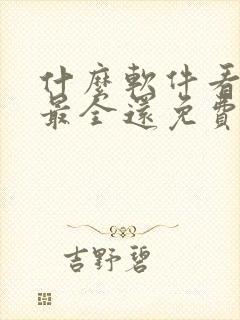 什麼軟件看
最全還免費
吉野碧